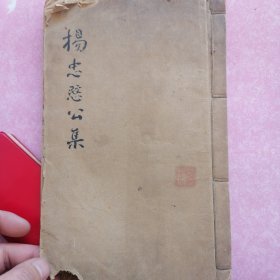 楊忠愍公集